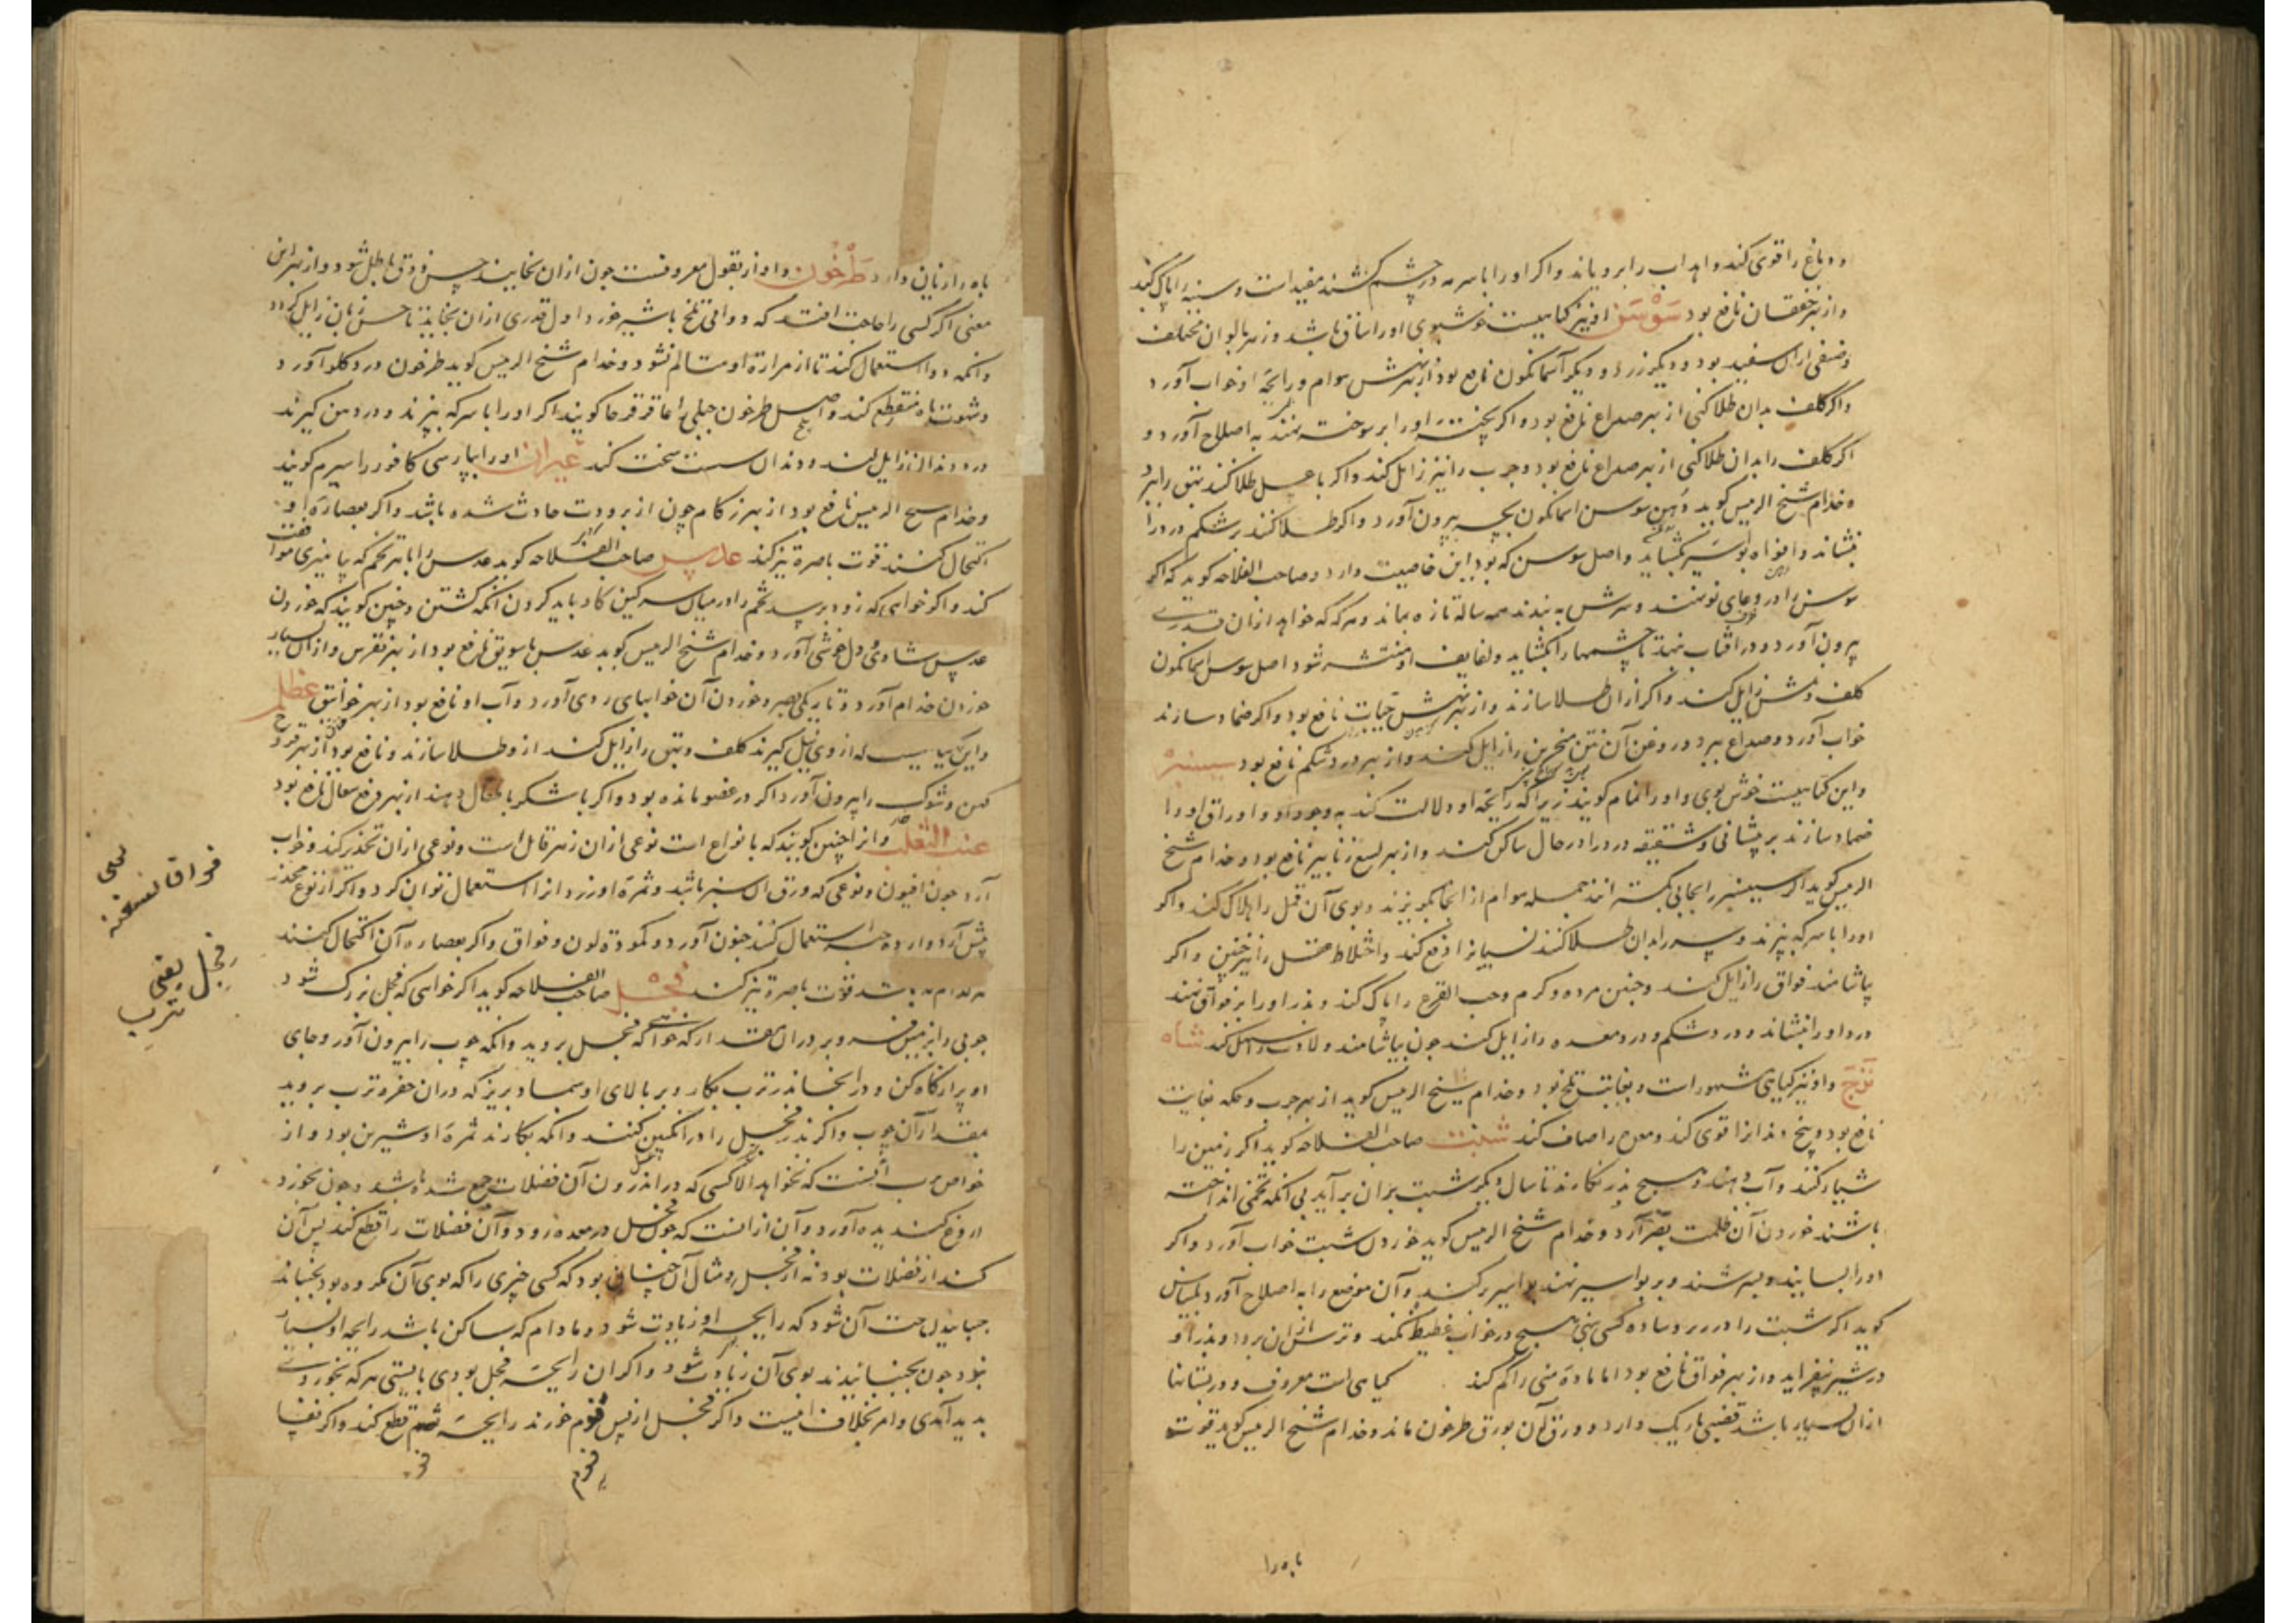 و دماغ را قوی کند و اهداب را برویاند و اکر او را با سرمه در چشم کشند مفید است و سینه را پاک کند
و از بهر خفقان نافع بود سوسن او نیز کیاهیست خوشبوی او را ساق باشد و زهر بالوان مختلف
و صنفی ازان سفید بود و دیکر زرد و دیکر آسمانکون نافع بود از بهر نهش هوام و رایحهٔ او خواب آورد
و اکر کلف بدان طلا کنی از بهر صداع نافع بود و اکر پخته او را بر سوخته نهند به اصلاح آورد و
اکر کلف را بدان طلا کنی از بهر صداع نافع بود و جرب را نیز زایل کند و اکر با عسل طلا کنند بهق را ببرد
و خدام شیخ الرییس کوید دهن سوسن اسمانکون بچه بیرون آورد و اکر طلا کنند بر شکم درد را
بنشاند و افواه بواسیر بکشاید و اصل سوسن کبود این خاصیت دارد و صاحب الفلاحه کوید که اکر
سوسن را در وعای نو نهند و سرش به بندند همه ساله تازه بماند و هر که که خواهد ازان قدری
بیرون آورد و در افتاب نهد تا چشمها را بکشاید و لفایف او منتشر شود اصل سوسن اسمانکون
کلف و نمش زایل کند و اکر ازان طلا سازند و از بهر نهش حیات نافع بود و اکر ضماد سازند
خواب آورد و صداع ببرد و روغن آن نتن منخرین را زایل کند و از بهر درد شکم نافع بود سیسنبر
و این کیاهیست خوش بوی و او را نمام کویند زیرا که رایحهٔ او دلالت کند به وجود او و اوراق او را
ضماد سازند بر پیشانی و شقیقه درد را در حال ساکن کند و از بهر لسع زنابیر نافع بود و خدام شیخ
الرییس کوید اکر سیسنبر را بجایی بکسترانند جمله هوام از انجا بکریزند و بوی آن قمل را هلاک کند و اکر
او را با سرکه بپزند و سر را بدان طلا کنند نسیان را دفع کند و اختلاط عقل را نیز همچنین و اکر
بیاشامند فواق را زایل کند و جنین مرده و کرم و حب القرع را پاک کند و بذر او را بر فواق نهند
درد او را بنشاند و درد شکم و درد معده را زایل کند چون بیاشامند و لادت را سهل کند شاه
ترج و او نیز کیاهی مشهور است و بغایت تلخ بود و خدام شیخ الرییس کوید از بهر جرب و حکه بغایت
نافع بود و بیخ دندانرا قوی کند و معده را صاف کند شبت صاحب الفلاحه کوید اکر زمین را
شیار کنند و آب دهند و هیچ بذر نکارند تا سال دیکر شبت بران برآید بی آنکه تخمی انداخته
باشند خوردن آن ظلمت بصر آرد و خدام شیخ الرییس کوید خوردن شبت خواب آورد و اکر
او را بسایند و بسرشند و بر بواسیر نهند بواسیر برکند و آن موضع را به اصلاح آورد بلیناس
کوید اکر شبت را در زیر وساده کسی نهی هیچ در خواب غطیط نکند و ترس ازان برود و بذر او
در شیر بیفزاید و از بهر فواق نافع بود اما ماده منی را کم کند کیاهی است معروف و در بستانها
ازان بسیار باشد قضبی باریک دارد و ورق آن بورق طرخون ماند و خدام شیخ الرییس کوید قوت
باه را
باه را زیان دارد طرخون و او از بقول معروفست چون ازان بخایند حس ذوق باطل شود و از بهر این
معنی اکر کسی را حاجت افتد که دوای تلخ باشیر خورد اول قدری ازان بخاید تا حس زبان زایل کردد
وانکه دوا استعمال کند تا از مرارة او متالم نشود و خدام شیخ الرییس کوید طرخون درد کلو آورد
و شهوت باه منقطع کند و اصل طرخون جبلی را عاقرقرحا کویند اکر او را با سرکه بپزند و در دهن کیرند
درد دندان زایل کند و دندان سست سخت کند عبیران او را بپارسی کافور را سپرم کویند
و خدام شیخ الرییس نافع بود از بهر زکام چون از برودت حادث شده باشد و اکر بعصارهٔ او
اکتحال کنند قوت باصره تیز کند عدس صاحب الفلاحه کوید عدس را با هر تخم که بیامیزی موافقت
کند و اکر خواهی که زود برسد تخم را در میان سرکین کاو باید کردن آنکه کشتن و چنین کویند که خوردن
عدس شادی و دل خوشی آورد و خدام شیخ الرییس کوید عدس با سویق نافع بود از بهر نقرس و ازان بسیار
خوردن جذام آورد و تاریکی بصر و خوردن آن خوابهای ردی آورد و آب او نافع بود از بهر خوانیق عظلم
و این کیاهیست که از وی نیل کیرند کلف و بهق را زایل کند ازو طلا سازند و نافع بود از بهر قروح
کهن و شوک را بیرون آورد اکر در عضو مانده بود و اکر باشکر با مثقال دهند از بهر دفع سعال نافع بود
عنب الثعلب و انرا چنین کویند که بانواع است نوعی ازان زهر قاتل است و نوعی ازان تخدیر کند و خواب
آرد چون افیون و نوعی که ورق آن سبز باشد و ثمرهٔ او زرد انرا استعمال توان کرد و اکر از نوع مخدر
بیش از دوازده حبه استعمال کنند جنون آورد و کمودة لون و فواق و اکر بعصاره آن اکتحال کنند
قوت باصره تیز کند فجل صاحب الفلاحه کوید اکر خواهی که فجل بزرک شود
چوبی را بزمین فرو بر دران مقدار که خواهی که فجل بروید وانکه چوب را بیرون آور و جای
او پر از کاه کن و در انجا بذر ترب بکار و بر بالای او سماد بریز که دران حفره ترب بروید
مقدار آن چوب و اکر بذر فجل را در انکبین کنند وانکه بکارند ثمرهٔ او شیرین بود و از
خواص ترب آنست که نخواهد الا کسی که در اندرون آن فضلات جمع شده باشد و چون بخورد
اروغ کندیده آورد و آن از انست که چون فجل در معده رود و آن فضلات را قطع کند پس آن
کند از فضلات بود نه از فجل و مثال آن چنان بود که کسی چیزی را که بوی آن مکروه بود بجنباند
جنبانیدن جهت آن شود که رایحه او زیادت شود و مادام که ساکن باشد رایحه او بسیار
نبود چون بجنبانیدند بوی آن زیادت شود و اکر ان رایحهٔ فجل بودی بایستی هر که بخوردی
بدید آمدی و امر بخلاف اینست و اکر فجل از پس فوم خورند رایحهٔ فوم قطع کند و اکر
فوم
فجل یعنی
ترب